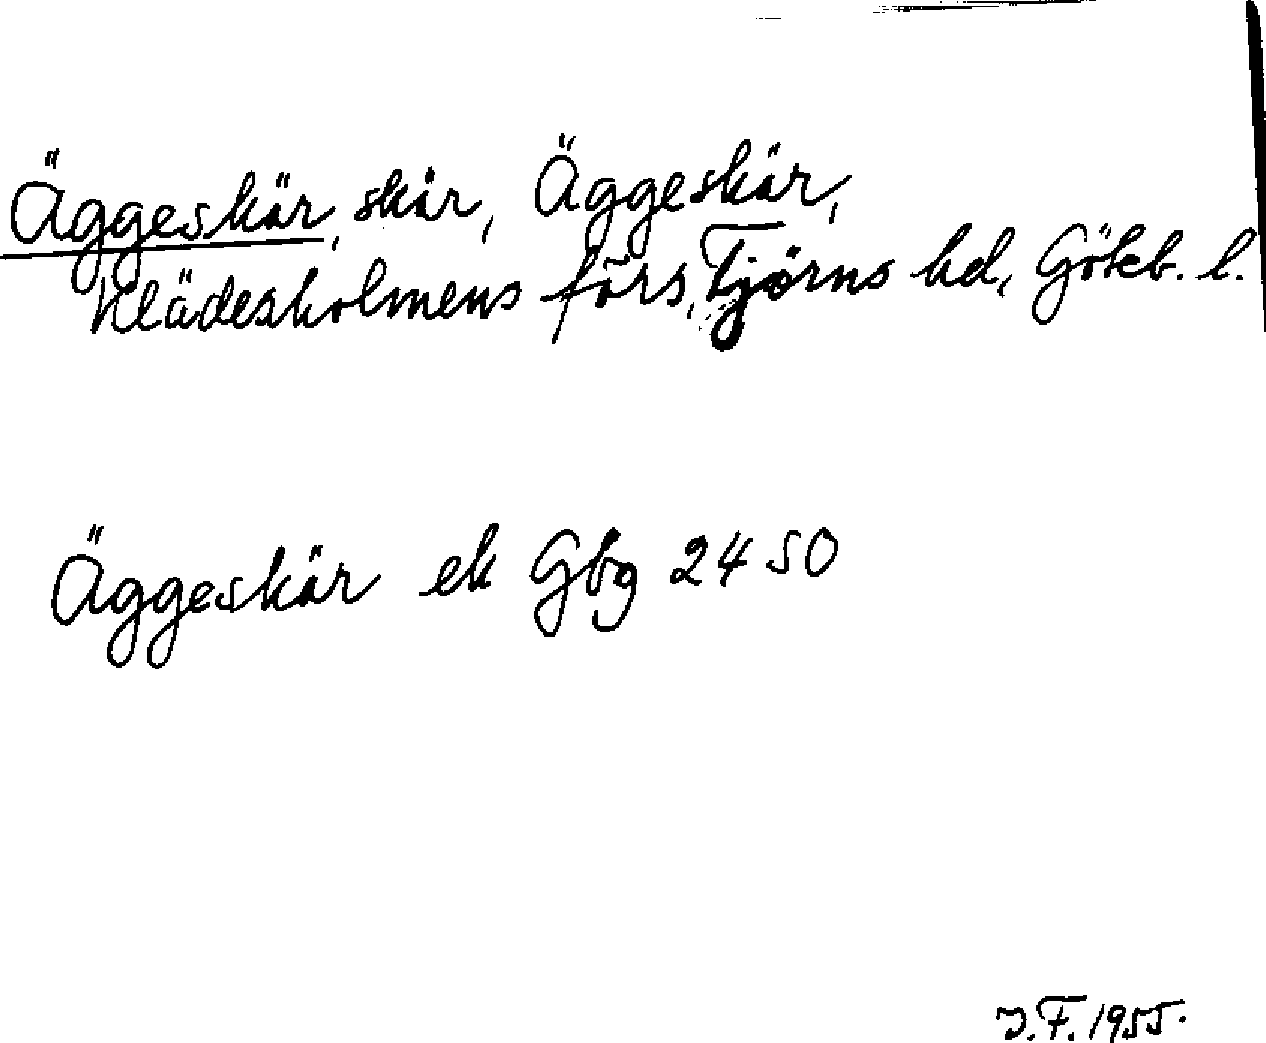 Äggeskär, skär, Äggeskär,
Klädesholmens förs, Tjörns hd, Göteb. l.
Äggeskär ek Gbg 2450
J.F. 1955.